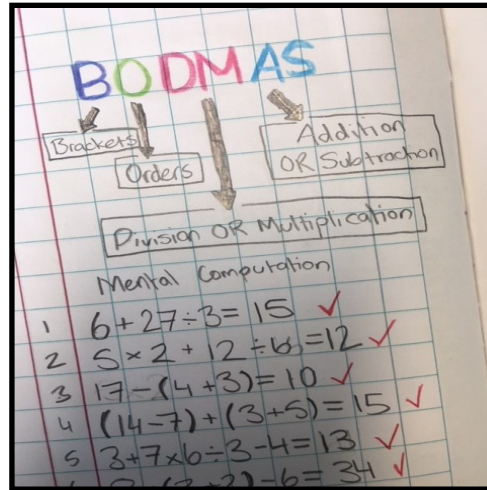 BODMAS
Brackets
Orders
Addition
OR Subtraction
Division OR Multiplication
Mental Computation
1 6+27÷3=15 ✓
2 5×2+12÷6=12 ✓
3 17-(4+3)=10 ✓
4 (14-7)+(3+5)=15 ✓
5 3+7×6÷3-4=13 ✓
-6=34 ✓